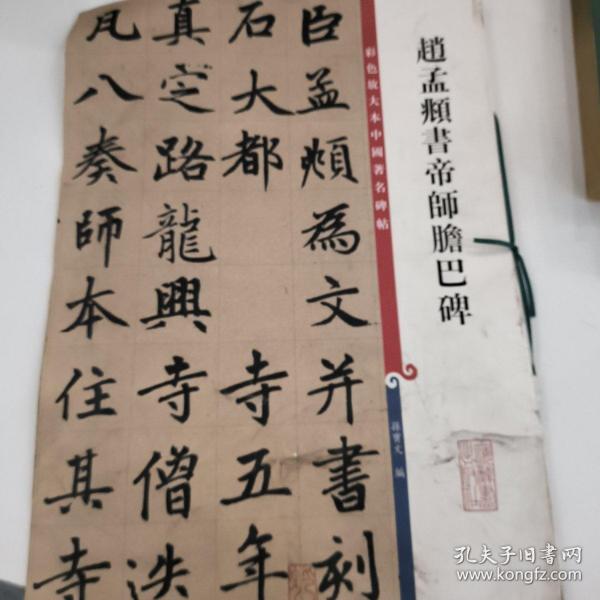 趙孟頫書帝師膽巴碑
彩色放大本中國著名碑帖
孫寶文 編
臣孟頫為文并書刻
石大都寺五年
真定路龍興寺僧迭
凡八奏師本住其寺
孔夫子旧书网
www.kongfz.com